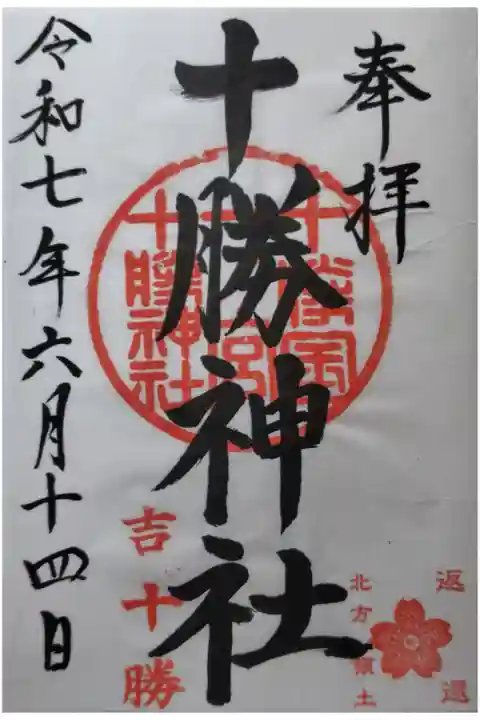 奉拝
十勝神社
令和七年六月十四日
十勝国
一宮
十勝神社
吉十勝
返還
北方領土